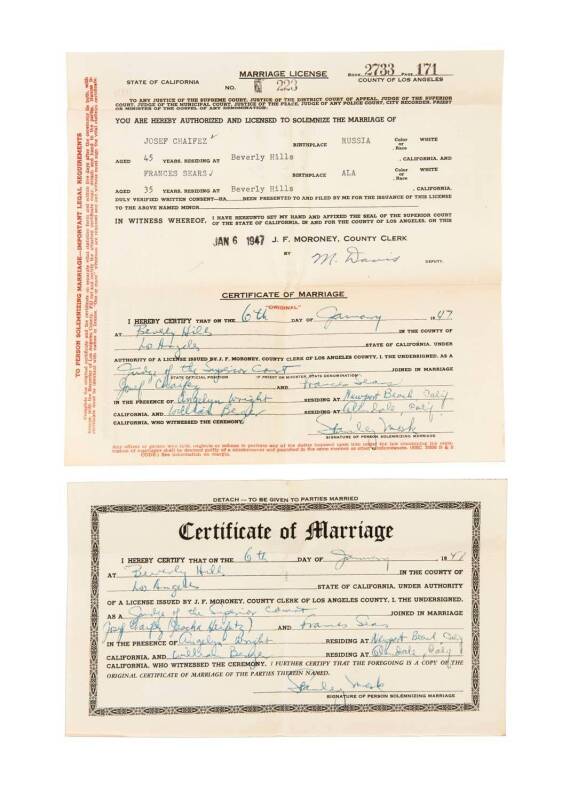 MARRIAGE LICENSE
BOOK 2733 PAGE 171
STATE OF CALIFORNIA
NO. 223
COUNTY OF LOS ANGELES
TO ANY JUSTICE OF THE SUPREME COURT, JUSTICE OF THE DISTRICT COURT OF APPEAL, JUDGE OF THE SUPERIOR
COURT, JUDGE OF THE MUNICIPAL COURT, JUSTICE OF THE PEACE, JUDGE OF ANY POLICE COURT, CITY RECORDER, PRIEST
OR MINISTER OF THE GOSPEL OF ANY DENOMINATION:
YOU ARE HEREBY AUTHORIZED AND LICENSED TO SOLEMNIZE THE MARRIAGE OF
JOSEF CHAIFEZ BIRTHPLACE RUSSIA Color or Race WHITE
AGED 45 YEARS, RESIDING AT Beverly Hills , CALIFORNIA, AND
FRANCES SEARS BIRTHPLACE ALA Color or Race WHITE
AGED 35 YEARS, RESIDING AT Beverly Hills , CALIFORNIA.
DULY VERIFIED WRITTEN CONSENT—HA BEEN PRESENTED TO AND FILED BY ME FOR THE ISSUANCE OF THIS LICENSE
TO THE ABOVE NAMED MINOR
IN WITNESS WHEREOF, I HAVE HEREUNTO SET MY HAND AND AFFIXED THE SEAL OF THE SUPERIOR COURT
OF THE STATE OF CALIFORNIA, IN AND FOR THE COUNTY OF LOS ANGELES, ON THIS
JAN 6 1947 J. F. MORONEY, COUNTY CLERK
BY M. Davis DEPUTY.
CERTIFICATE OF MARRIAGE
"ORIGINAL"
I HEREBY CERTIFY THAT ON THE 6th DAY OF January 1947
AT Beverly Hills IN THE COUNTY OF
Los Angeles STATE OF CALIFORNIA, UNDER
AUTHORITY OF A LICENSE ISSUED BY J. F. MORONEY, COUNTY CLERK OF LOS ANGELES COUNTY, I, THE UNDERSIGNED, AS A
Judge of the Superior Court JOINED IN MARRIAGE
STATE OFFICIAL POSITION IF PRIEST OR MINISTER, STATE DENOMINATION
Josef Chaifez AND Frances Sears
IN THE PRESENCE OF Angelyn Wright RESIDING AT Newport Beach Calif
CALIFORNIA, AND William Berger RESIDING AT Glendale, Calif
CALIFORNIA, WHO WITNESSED THE CEREMONY.
Stanley Mosk
SIGNATURE OF PERSON SOLEMNIZING MARRIAGE
TO PERSON SOLEMNIZING MARRIAGE—IMPORTANT LEGAL REQUIREMENTS
DETACH—TO BE GIVEN TO PARTIES MARRIED
Certificate of Marriage
I HEREBY CERTIFY THAT ON THE 6th DAY OF January 1947
AT Beverly Hills IN THE COUNTY OF
Los Angeles STATE OF CALIFORNIA, UNDER AUTHORITY
OF A LICENSE ISSUED BY J. F. MORONEY, COUNTY CLERK OF LOS ANGELES COUNTY, I, THE UNDERSIGNED,
AS A Judge of the Superior Court JOINED IN MARRIAGE
Josef Chaifez (Jascha Heifetz) AND Frances Sears
IN THE PRESENCE OF Angelyn Wright RESIDING AT Newport Beach Calif
CALIFORNIA, AND William Berger RESIDING AT Glendale, Calif
CALIFORNIA, WHO WITNESSED THE CEREMONY. I FURTHER CERTIFY THAT THE FOREGOING IS A COPY OF THE
ORIGINAL CERTIFICATE OF MARRIAGE OF THE PARTIES THEREIN NAMED.
Stanley Mosk
SIGNATURE OF PERSON SOLEMNIZING MARRIAGE